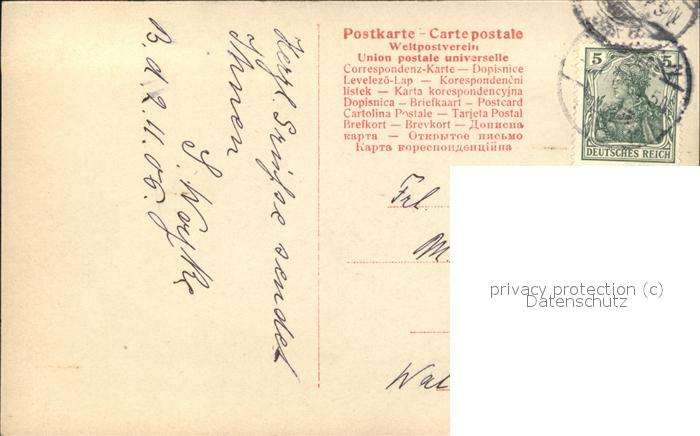 Postkarte – Carte postale
Weltpostverein
Union postale universelle
Correspondenz-Karte — Dopisnice
Levelező-Lap — Korespondenční
listek — Karta korespondencyjna
Dopisnica — Briefkaart — Postcard
Cartolina Postale — Tarjeta Postal
Brefkort — Brevkort — Дописна
карта — Открытое письмо
Карта кореспонденційна
5 5
DEUTSCHES REICH
Herzl. Grüße sendet
Ihnen
B. d. 2. 11. 05.
Frl.
M
Wal
privacy protection (c)
Datenschutz